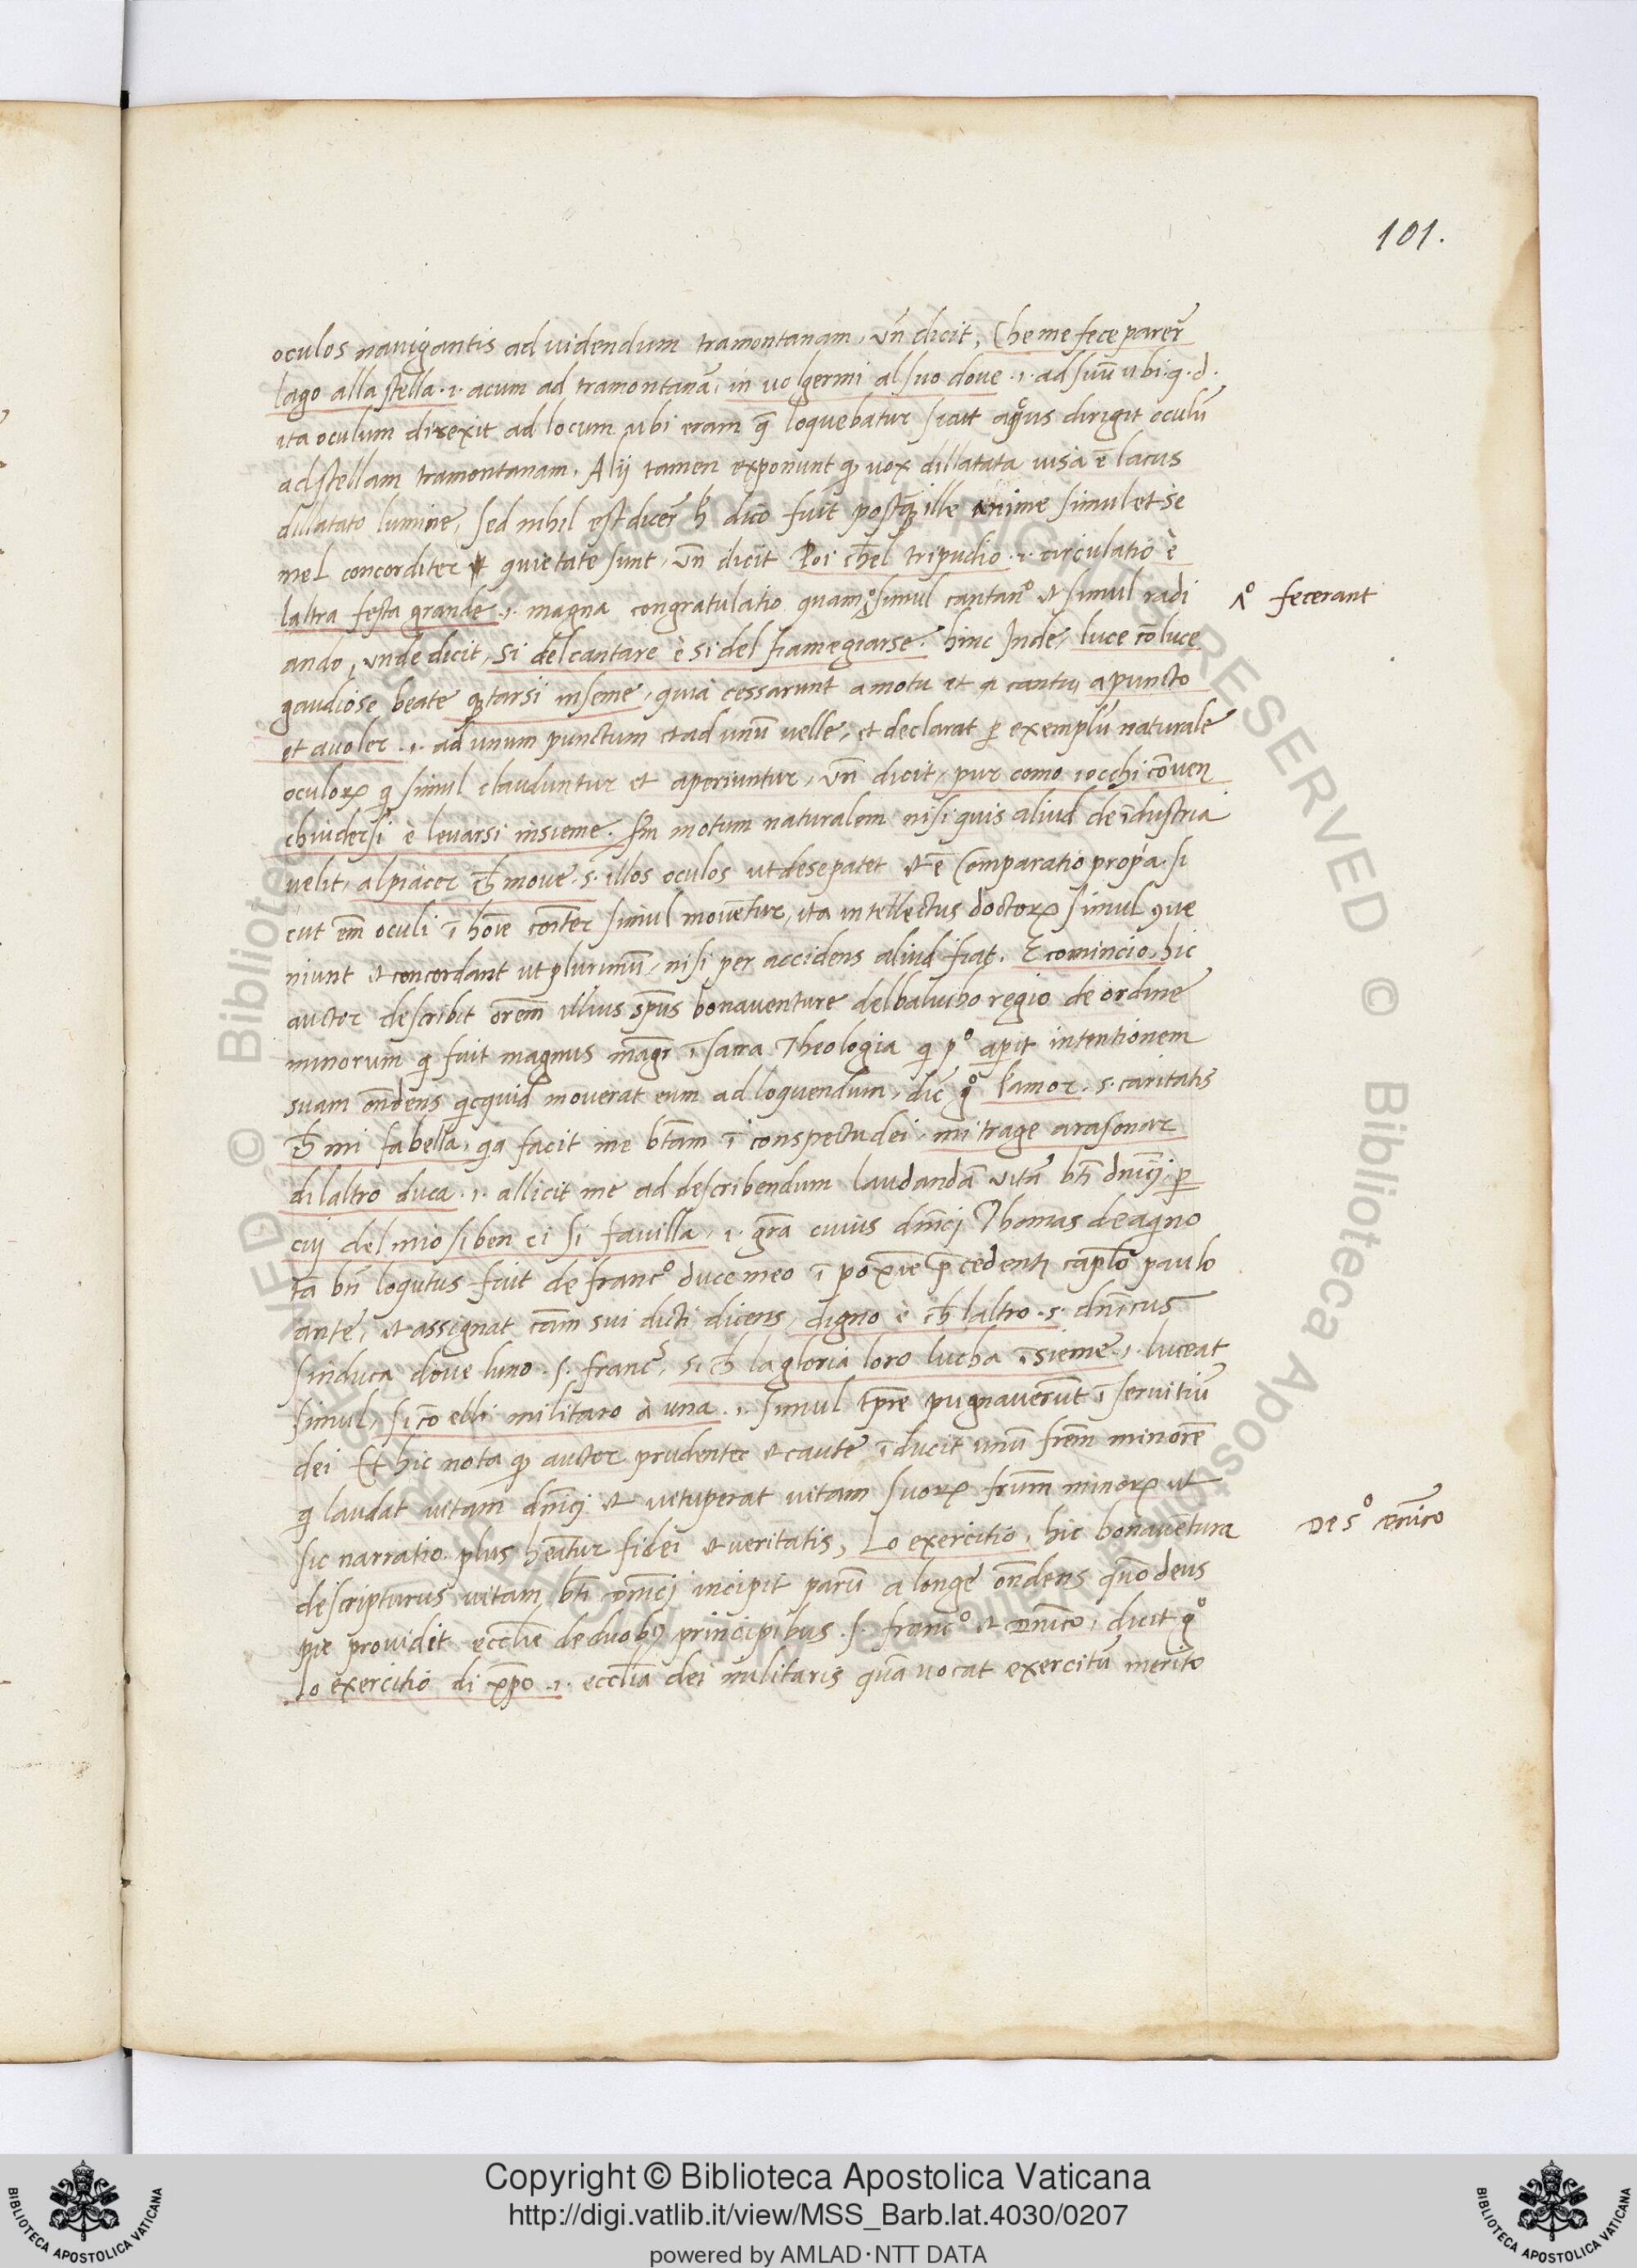 101.
oculos nauigantis ad uidendum tramontanam, Vñ dicit, Che me fece parer̃
lago alla stella .i. acum ad tramontanã, in uolgermi al suo doue .i. ad suũ ubi. q. d.
ita oculum direxit ad locum ubi eram q̃ loquebatur sicut aqͦus dirigit oculũ
ad stellam tramontanam. Alij tamen exponunt qꝫ uox dillatata uisa ẽ lacus
dillatato lumine, sed nihil est dicer̃ h̾ dico fuit postqꝫ ille anime simul et se
mel concorditer quietate sunt, Vñ dicit Poi ch̃el tripudio .i. circulatio è
laltra festa grande .i. magna congratulatio quam simul cantanͦ et simul radi
fecerant
ando, unde dicit, Si del cantare è si del fiamegiarse. hinc Inde, luce cõ luce
gaudiose beate qꝫtarsi inseme, quia cessarunt a motu et a cantu, apuncto
et auoler .i. ad unum punctum et ad unũ uelle, et declarat ꝑ exemplũ naturale
oculoꝝ q̃ simul clauduntur et aperiuntur, Vñ dicit, pur como iocchi cõuen
chiudersi è leuarsi insieme. sm̃ motum naturalem nisi quis aliud de ĩdustria
uelit, al piacer ch̃ moue .s. illos oculos ut de se patet et ẽ Comparatio pro͡pa. si
cut em̃ oculi ĩ hoĩe coit̃er simul mouẽtur, ita intellectus doctoꝝ simul ꝯue
niunt et concordant ut plurimũ, nisi per accidens aliud fiat. E comincio, hic
auctor describit orẽm illius sp̃us bonauenture del baluibo regio de ordine
minorum q̃ fuit magnus magr̃ ĩ sacra Theologia q̃ pͦ aperit intentionem
suam oñdens q̃cquid mouerat eum ad loquendum, dic̃ gͦ Lamor .s. caritatis
ch̃ mi fa bella, qa facit me bt̃am ĩ conspectu dei, mi trage arasonar
dilaltro duca .i. allicit me ad describendum laudandã uitã bt̃i dñici, ꝑ
cuj del mio si ben ci si fauilla, .i. gr̃a cuius dñici Thomas de aqino
tã bñ loqutus fuit de francͦ duce meo ĩ pͦxĩe p̃cedenti cap̃lo paulo
ante, et assignat cãm sui dicti dicens, digno è ch̃ laltro .s. dñicus
sinduca doue luno .s. francs, si ch̃ la gloria loro lucha ĩsieme .i. luceat
simul, si cõ elli militaro à una .i. simul tp̃re pugnauerũt ĩ seruitiũ
dei Et hic nota qꝫ auctor prudenter et caute ĩducit unũ frẽm minorẽ
q̃ laudat uitam dñici et uetuperat uitam suoꝝ frũm minoꝝ ut
sic narratio plus heãtur fidei et ueritatis, Lo exercitio, hic bonauẽtura
De sͦ dñico
descripturus uitam bt̃i dñici incipit parũ a longe oñdens quõ deus
pie prouidit eccl̃ie de duobꝰ principibus .s. francͦ et Dñico, dicit gͦ
Lo exercitio di xp̃o .i. eccl̃ia dei militaris quã uocat exercitũ merito
Copyright © Biblioteca Apostolica Vaticana
http://digi.vatlib.it/view/MSS_Barb.lat.4030/0207
powered by AMLAD·NTT DATA